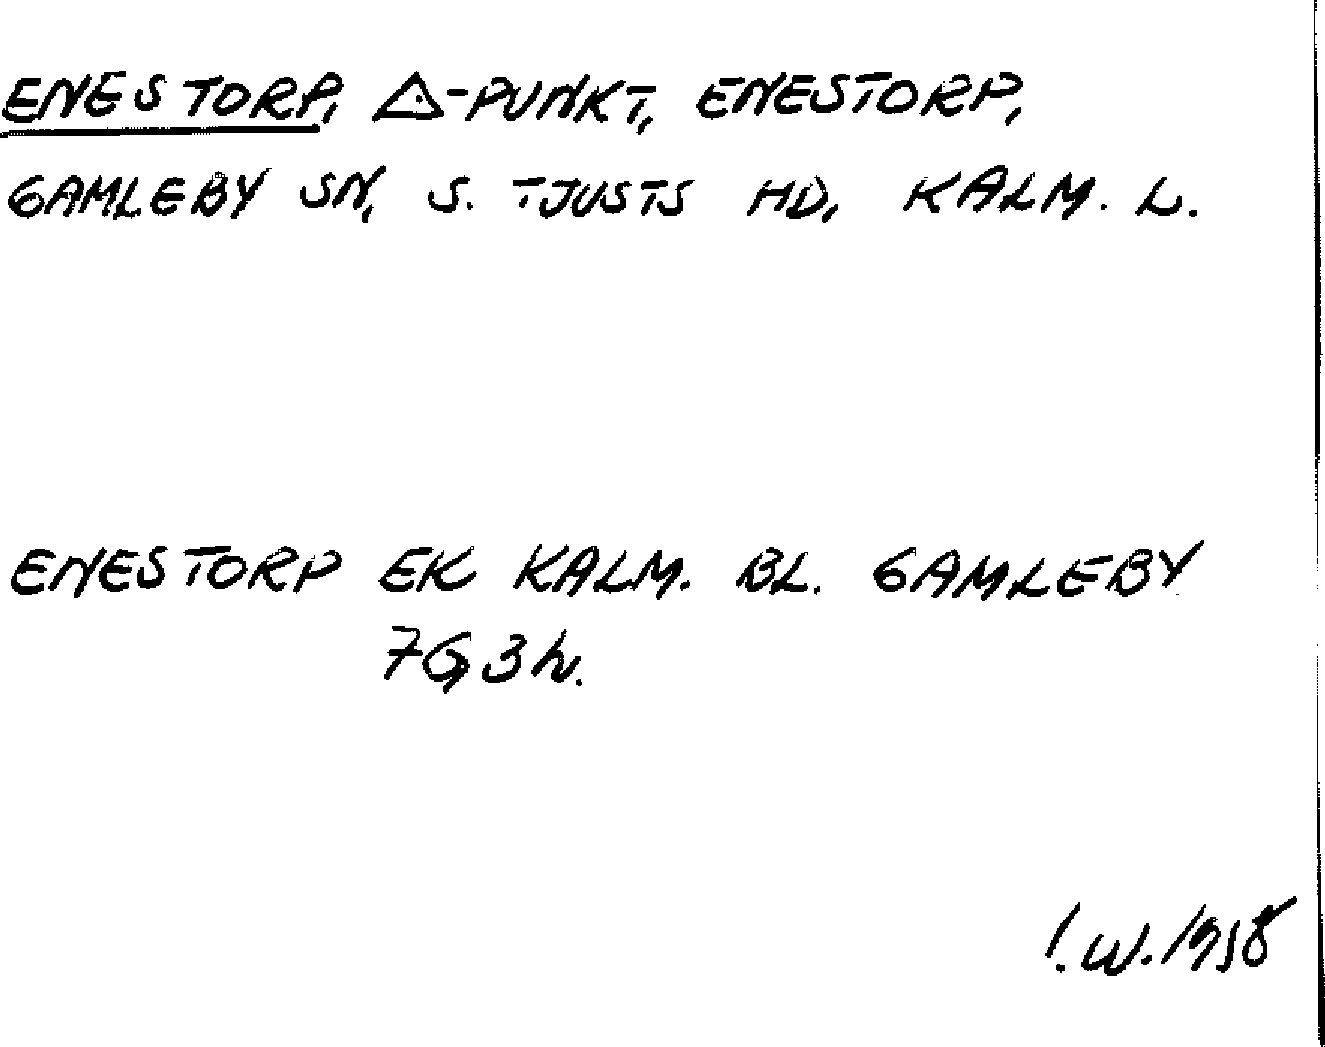 ENESTORP, △-PUNKT, ENESTORP,
GAMLEBY SN, S. TJUSTS HD, KALM. L.
ENESTORP EK KALM. BL. GAMLEBY
7G,3h.
I.W. 1958